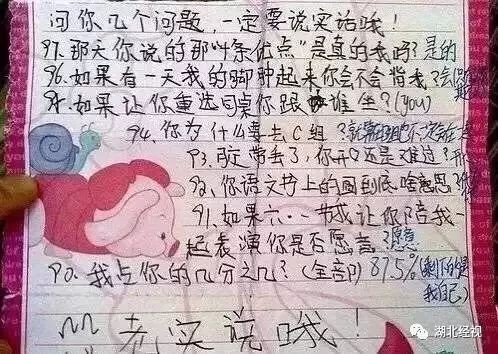 问你几个问题，一定要说实话哦！
97.那天你说的那"4条优点"是真的我吗？是的
96.如果有一天我的脚肿起来你会不会背我？会
95.如果让你重选同桌你跟谁坐？(you)
94.你为什么要去C组？
93.掉带丢了，你开心还是难过？
92.你语文书上的画到底啥意思？
91.如果六·一节我让你陪我一
起表演你是否愿意？愿意
90.我占你的几分之几？(全部) 87.5%(剩下的是
我自己)
老实说哦！
湖北经视